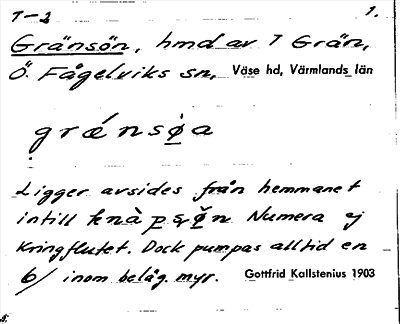 7-2 1.
Gränsön, hmd av 7 Grän,
Ö. Fågelviks sn, Väse hd, Värmlands län
grǽnsø̀a
Ligger avsides från hemmanet
intill Numera ej
kringflutet. Dock pumpas alltid en
inom beläg. myr. Gottfrid Kallstenius 1903